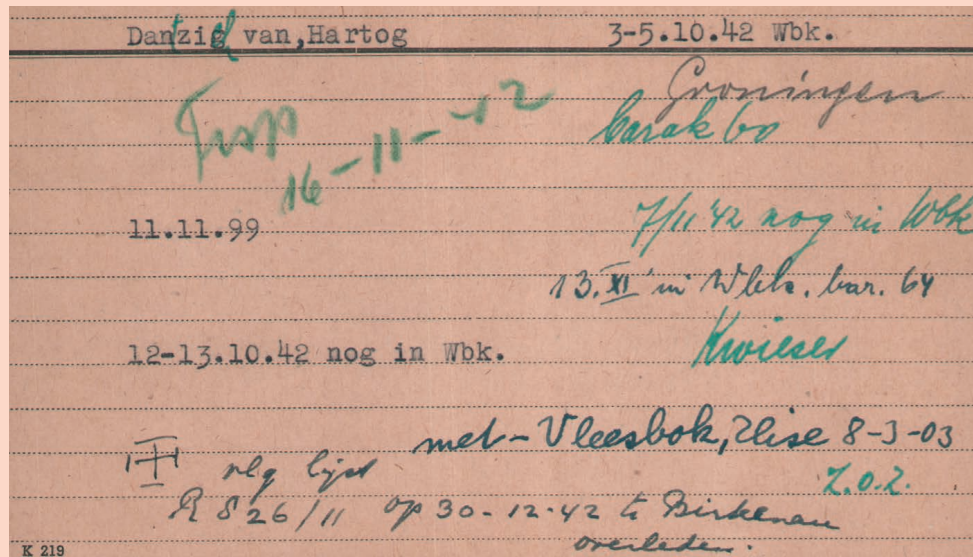 Dantzich van, Hartog 3-5.10.42 Wbk.
Groningen
barak 60
16-11-42
11.11.99 7/11 '42 nog in Wbk
13.XI in Wbk. bar. 64
12-13.10.42 nog in Wbk.
met-Vleesbok, Elise 8-3-03
vlg lijst Z.O.Z.
R 826/11 op 30-12-42 te Birkenau
overleden.
K 219